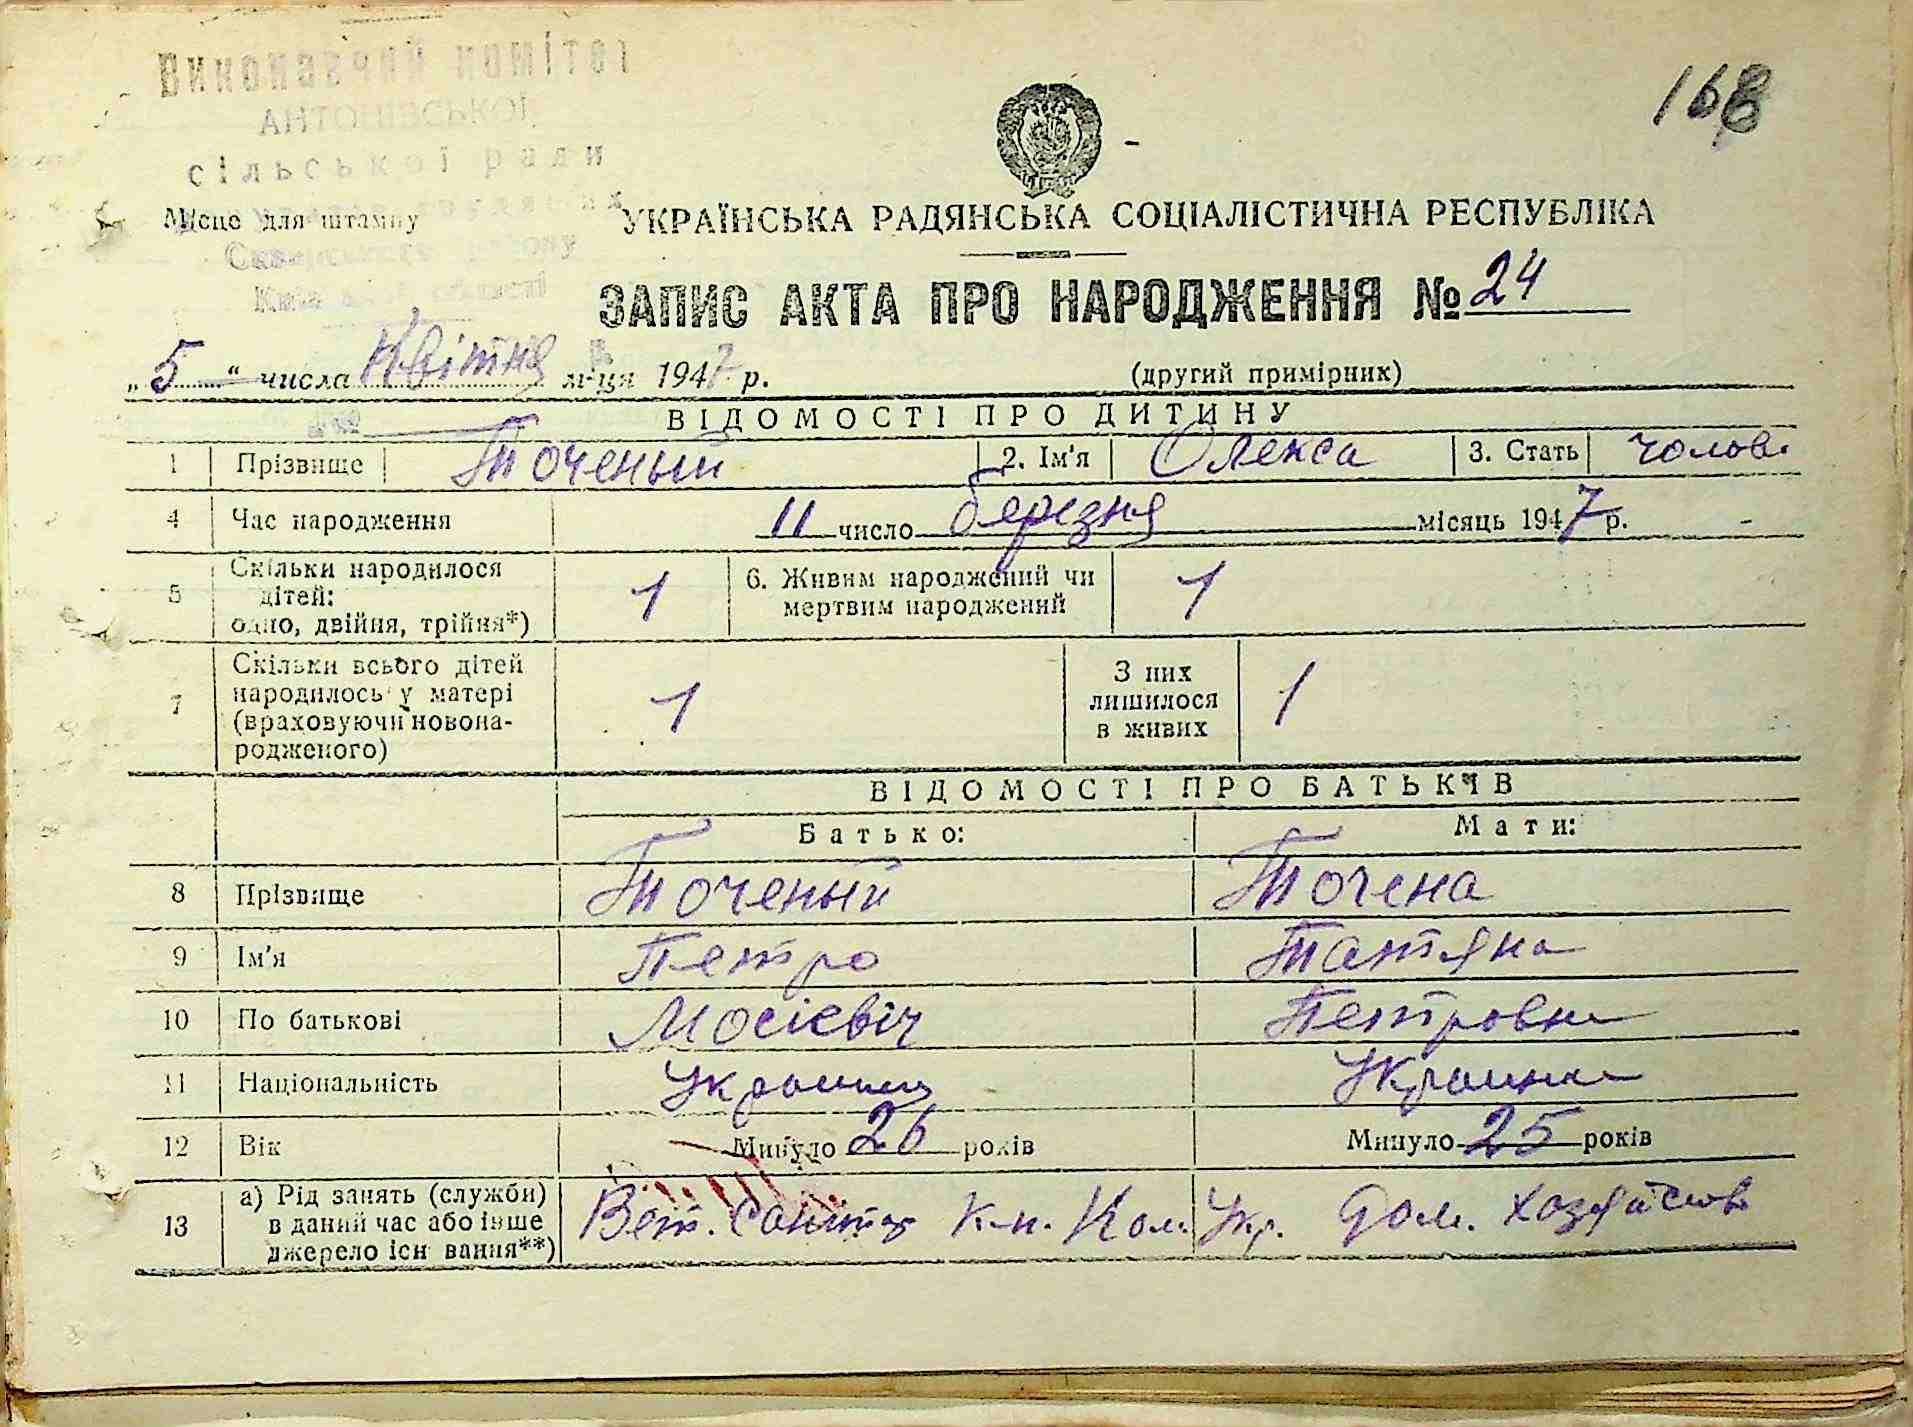 Виконавчий комітет
АНТОНІВСЬКОЇ
сільської ради
168
Місце для штампу
УКРАЇНСЬКА РАДЯНСЬКА СОЦІАЛІСТИЧНА РЕСПУБЛІКА
ЗАПИС АКТА ПРО НАРОДЖЕННЯ № 24
„5“ числа Квітня м-ця 1947 р. (другий примірник)
ВІДОМОСТІ ПРО ДИТИНУ
1 Прізвище Точеный 2. Ім'я Олекса 3. Стать чолов.
4 Час народження 11 число березня місяць 1947 р.
5 Скільки народилося дітей: одно, двійня, трійня*) 1 6. Живим народжений чи мертвим народжений 1
7 Скільки всього дітей народилось у матері (враховуючи новонародженого) 1 З них лишилося в живих 1
ВІДОМОСТІ ПРО БАТЬКІВ
Батько: Мати:
8 Прізвище Точеный Точена
9 Ім'я Петро Татяна
10 По батькові Мосієвіч Петровна
11 Національність Украинец Украинка
12 Вік Минуло 26 років Минуло 25 років
13 а) Рід занять (служби) в даний час або інше джерело існування**) Вет. Санітар К-п. Дом. хозяйство